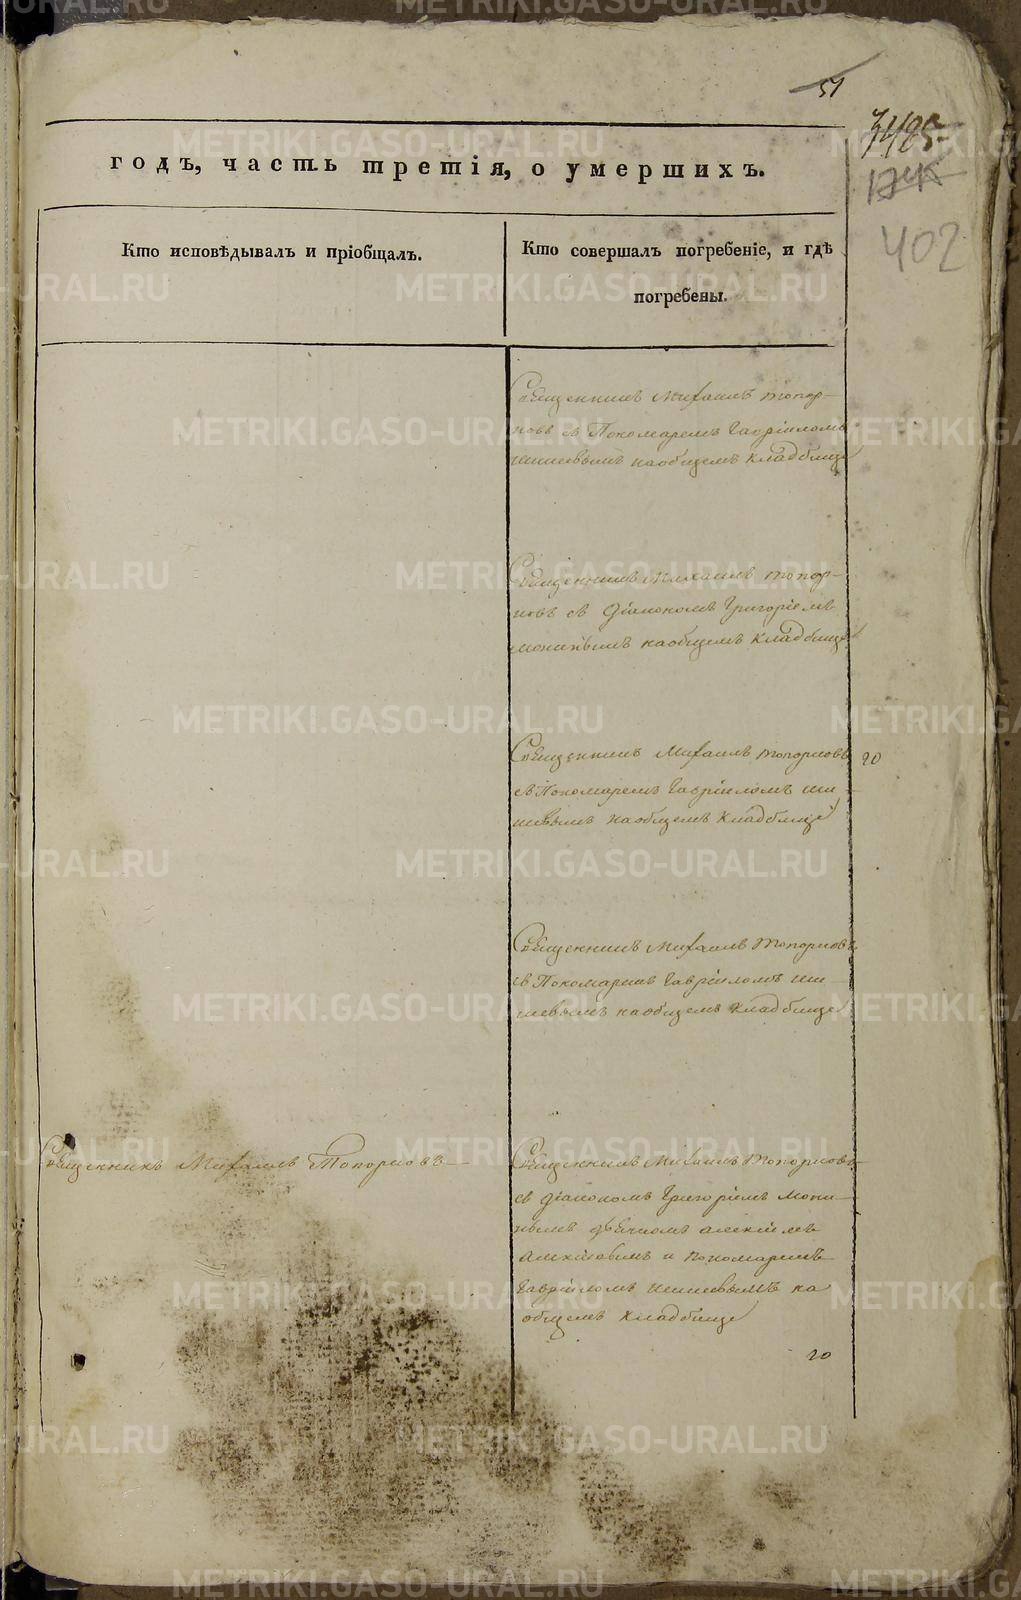 51
3485
402
годъ, часть третія, о умершихъ.
Кто исповѣдывалъ и пріобщалъ.
Кто совершалъ погребеніе, и гдѣ
погребены.
Священникъ Михаилъ Топор-
новъ съ Пономаремъ Гавріиломъ
на общемъ кладбище
Священникъ Михаилъ Топор-
новъ съ Діакономъ Григоріемъ
на общемъ кладбище
Священникъ Михаилъ Топорновъ
20
съ Пономаремъ Гавріиломъ Ши-
на общемъ кладбище
Священникъ Михаилъ Топорновъ
съ Пономаремъ Гавріиломъ Ши-
на общемъ кладбище
Священникъ Михаилъ Топорновъ
Священникъ Михаилъ Топорновъ
съ Діакономъ Григоріемъ
дьячкомъ Алексіемъ
и Пономаремъ
Гавріиломъ на
общемъ кладбище
20
METRIKI.GASO-URAL.RU